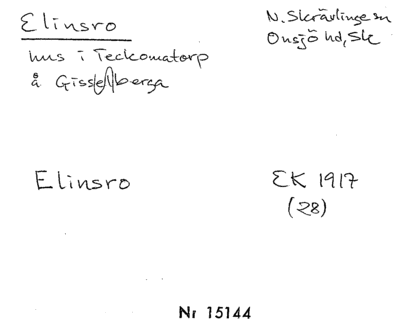 Elinsro
N. Skrävlinge sn
Onsjö hd, Sk
hus i Teckomatorp
å Gissleberga
Elinsro
EK 1917
(28)
Nr 15144